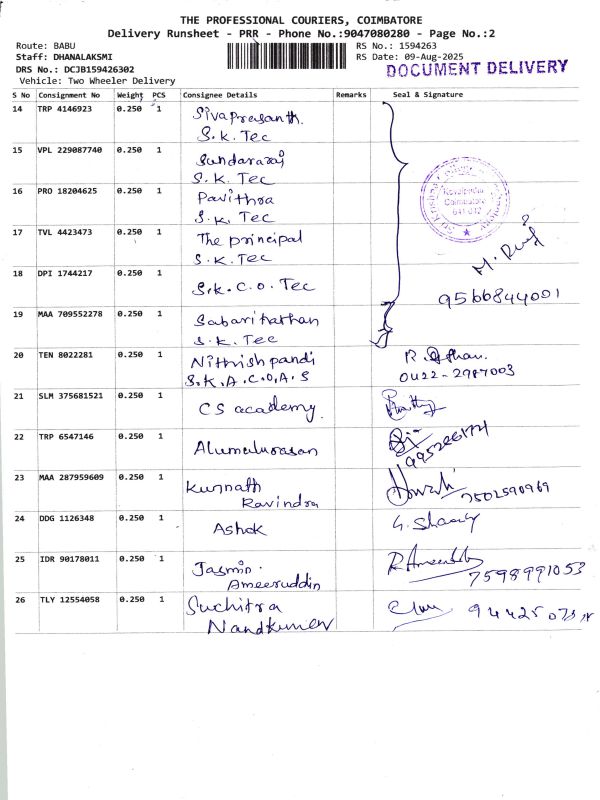 THE PROFESSIONAL COURIERS, COIMBATORE
Delivery Runsheet - PRR - Phone No.:9047080280 - Page No.:2
Route: BABU
Staff: DHANALAKSMI
DRS No.: DCJB159426302
Vehicle: Two Wheeler Delivery
RS No.: 1594263
RS Date: 09-Aug-2025
DOCUMENT DELIVERY
S No Consignment No Weight PCS Consignee Details Remarks Seal & Signature
14 TRP 4146923 0.250 1 Sivaprasanth.
S.K. Tec
15 VPL 229087740 0.250 1 Sundararaj
S.K. Tec
16 PRO 18204625 0.250 1 Pavithra
S.K. Tec
Kovaipudur
Coimbatore
641 042
17 TVL 4423473 0.250 1 The principal
S.K. Tec
18 DPI 1744217 0.250 1 S.K.C.O.Tec
9566844001
19 MAA 709552278 0.250 1 Sabarinathan
S.K. Tec
20 TEN 8022281 0.250 1 Nithishpandi
S.K.A.C.O.A.S
0422-2987003
21 SLM 375681521 0.250 1 CS academy.
22 TRP 6547146 0.250 1
23 MAA 287959609 0.250 1 Kunnath
Ravindra 7502590969
24 DDG 1126348 0.250 1 Ashok
25 IDR 90178011 0.250 1 Jasmin.
Ameeruddin 7598991053
26 TLY 12554058 0.250 1 Suchitra